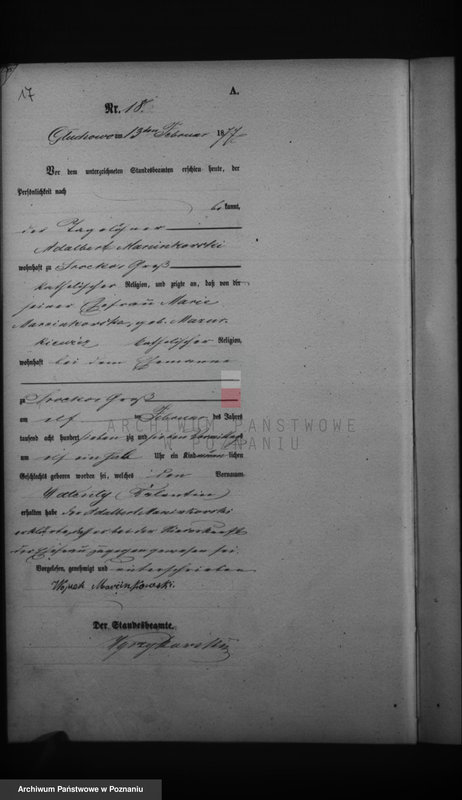 17
A.
Nr. 18.
Gluchowo am 13ten Februar 1877
Vor dem unterzeichneten Standesbeamten erschien heute, der
Persönlichkeit nach
bekannt,
der Tagelöhner
Adalbert Marcinkowski
wohnhaft zu Srocko Groß
katholischer Religion, und zeigte an, daß von der
seiner Ehefrau Marie
Marcinkowska, geb. Mazur
kiewicz katholischer Religion,
wohnhaft bei dem Ehemanne
zu Srocko Groß
am elf ten Februar des Jahres
tausend acht hundert sieben zig und sieben Vormittags
um elf ein halb Uhr ein Kind männlichen
Geschlechts geboren worden sei, welches den Vornamen
Walenty (Valentin)
erhalten habe der Adalbert Marcinkowski
erklärte, daß er bei der Niederkunft
der Ehefrau zugegen gewesen sei.
Vorgelesen, genehmigt und unterschrieben
Marcinkowski.
Der Standesbeamte.
ARCHIWUM PAŃSTWOWE
W POZNANIU
Archiwum Państwowe w Poznaniu